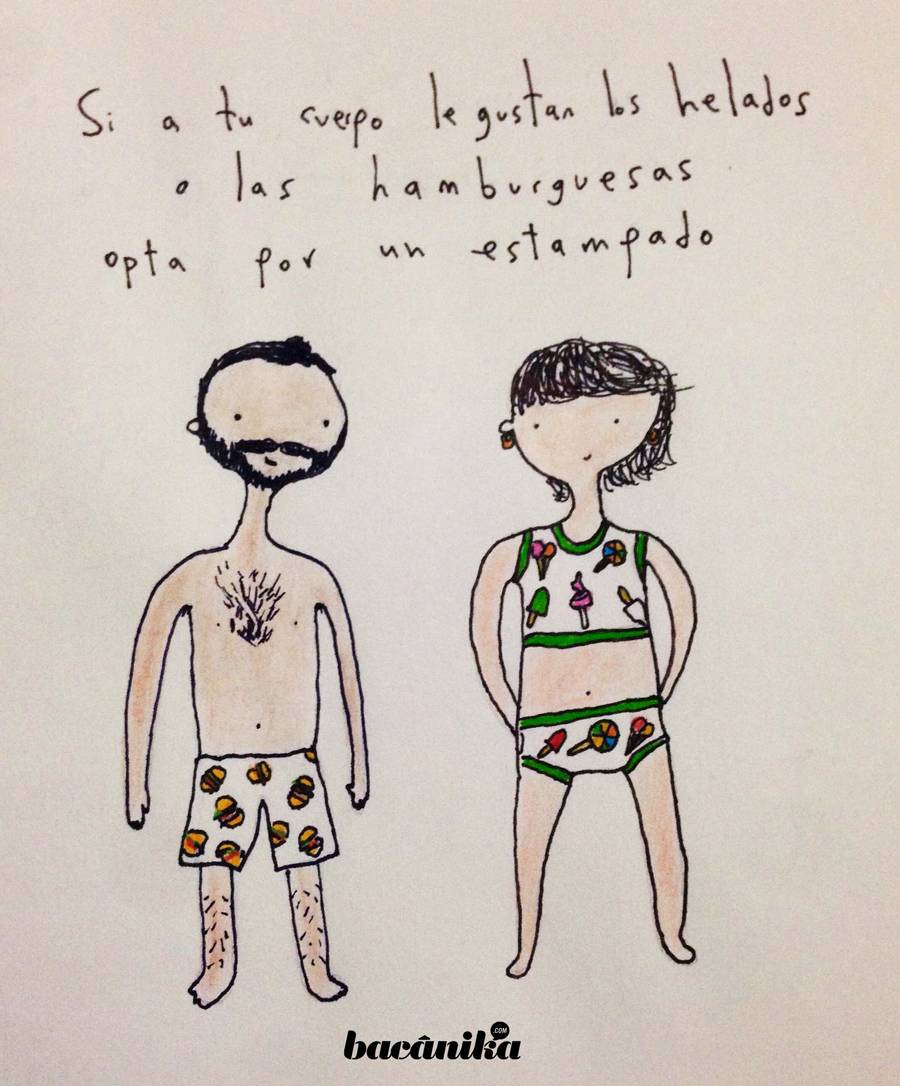 Si a tu cuerpo le gustan los helados
o las hamburguesas
opta por un estampado
bacânika
.COM